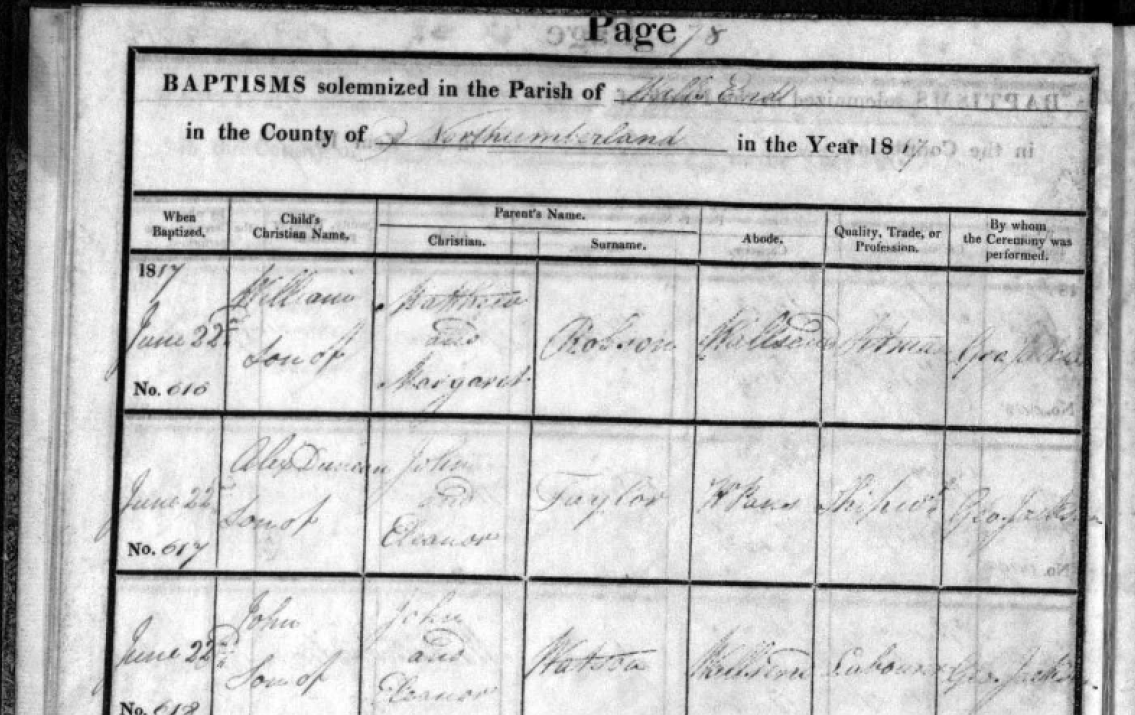 Page 78
BAPTISMS solemnized in the Parish of Walls End
in the County of Northumberland in the Year 1817
When Baptized.
Child's Christian Name.
Parent's Name.
Christian.
Surname.
Abode.
Quality, Trade, or Profession.
By whom the Ceremony was performed.
1817
June 22d
No. 616
William
Son of
Matthew
and
Margaret
Robson
Wallsend
Pitman
Geo Jackson
June 22d
No. 617
Alex Duncan
Son of
John
and
Eleanor
Taylor
W Pans
Shipwt
Geo Jackson
June 22d
No. 618
John
Son of
John
and
Eleanor
Watson
Wallsend
Labourer
Geo Jackson